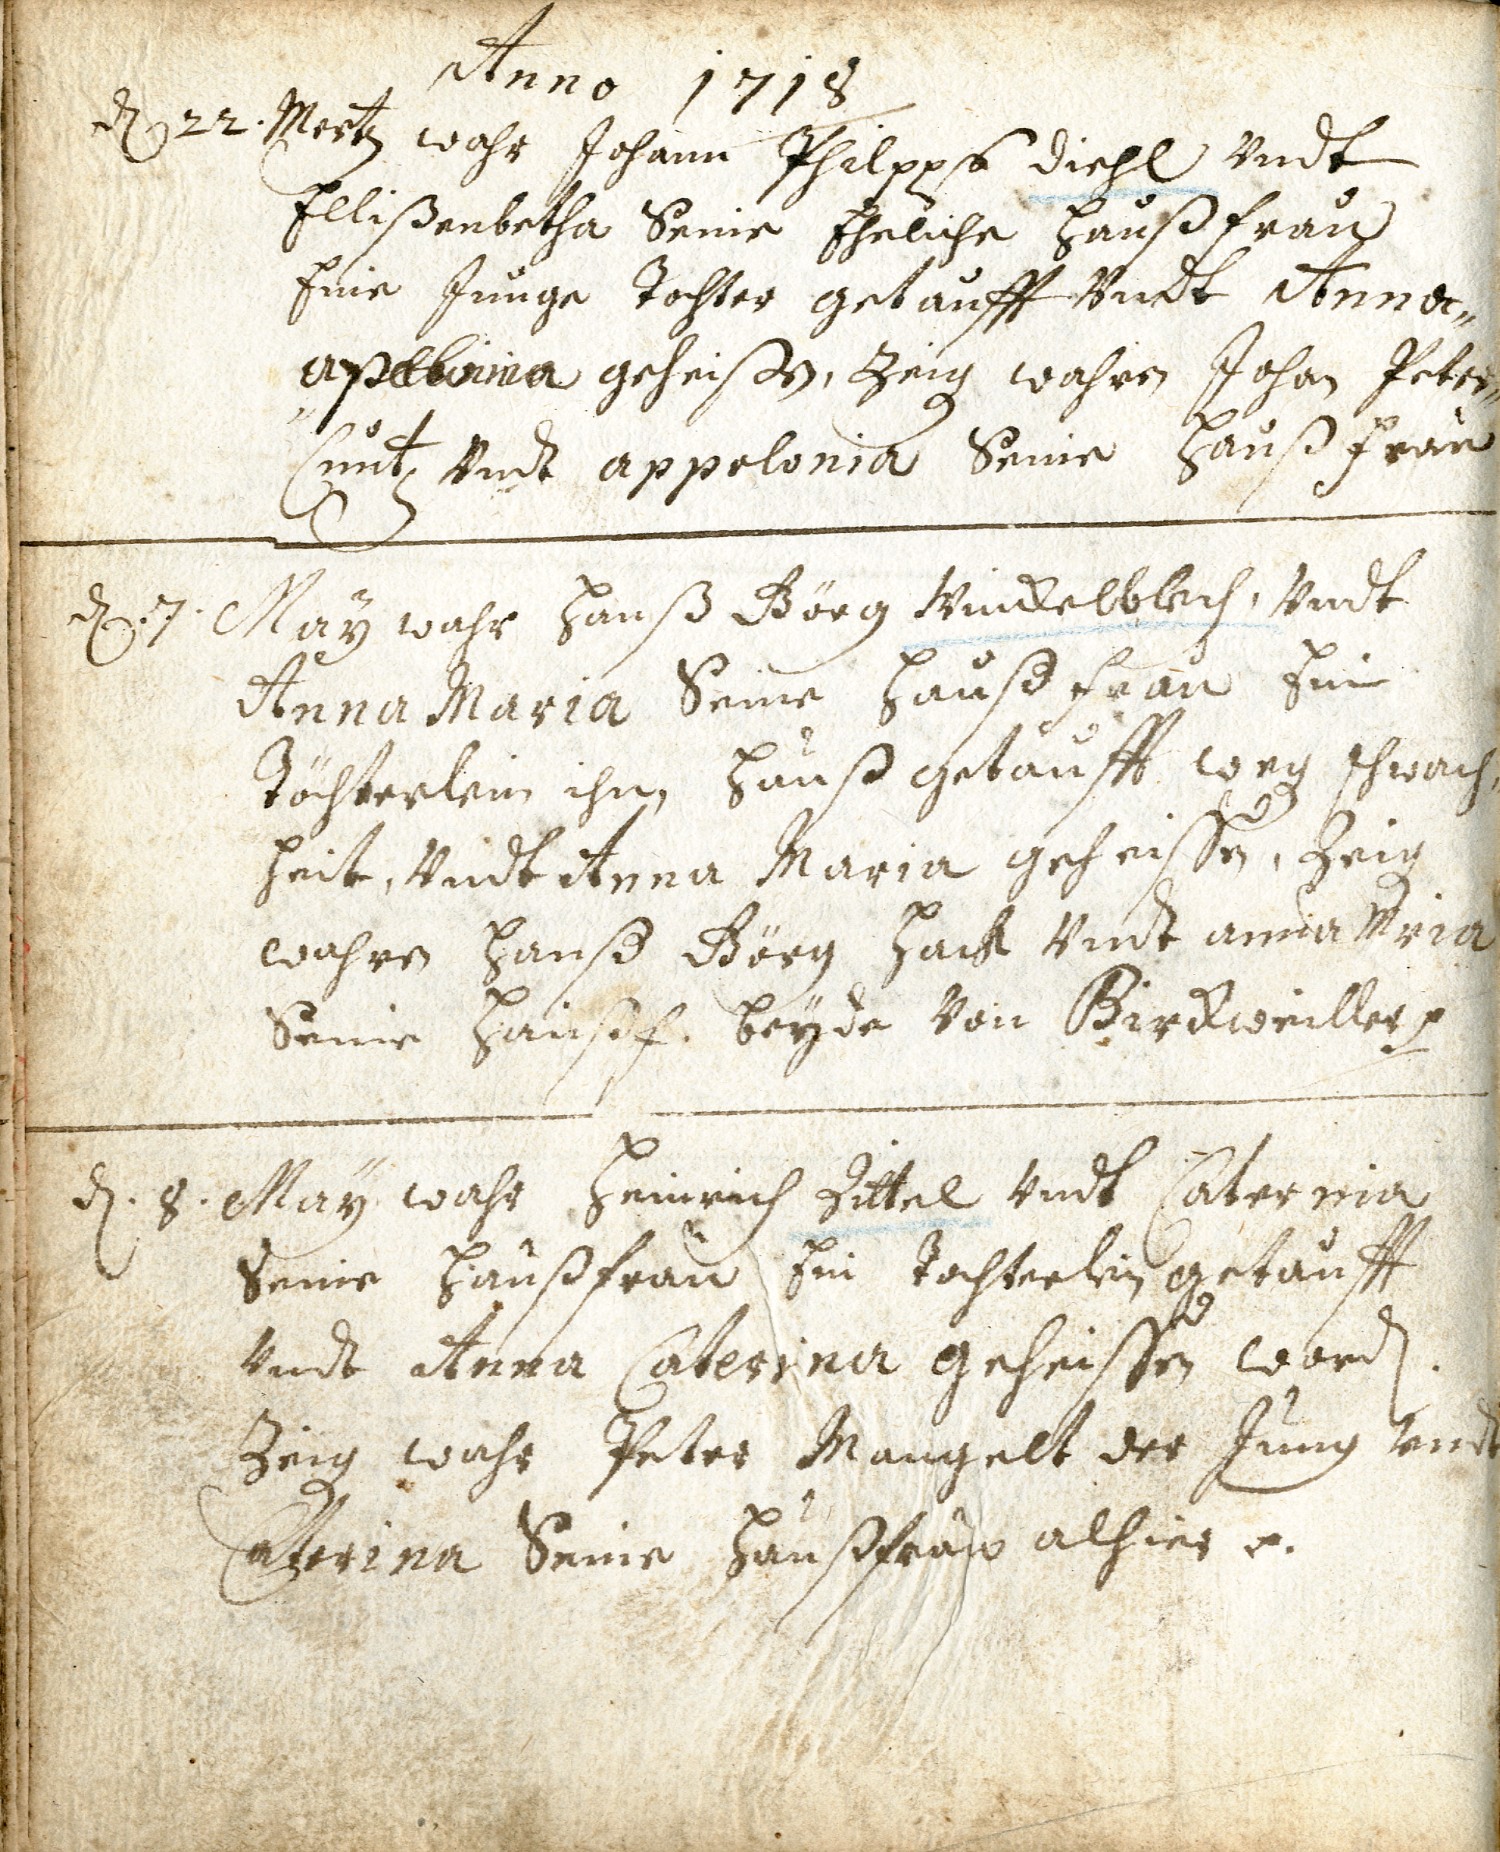 Anno 1718
d. 22. Mertz wahr Johann Philpps diehl Vndt
Ellißenbetha Seine Eheliche Haußfrau
Eine Junge Tochter getaufft Vndt Anna
geheißen, Zeig wahren Johan Peter
Cuntz Vndt appelonia Seine Haußfrau
d. 7. Maÿ wahr Hanß Görg Winckelblech, Vndt
Anna Maria Seine Haußfrau Ein
Töchterlein ihn Hauß getaufft weg schwach,
heit, Vndt Anna Maria geheissen, Zeig
wahren Hanß Görg Hack Vndt anna Mria
Seine Haußf. beÿde Von Birckweiller
d. 8. Maÿ wahr Heinrich Zittel Vndt Caterina
Seine Haußfrau Ein Tochterlein getaufft
Vndt Anna Caterina geheissen word.
Zeig wahr Peter Mangelt der Jung Vndt
Caterina Seine Haußfrau alhier